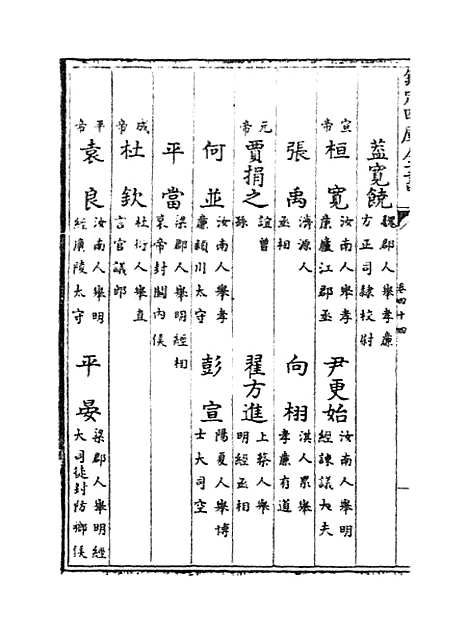 欽定四庫全書
卷四十四
蓋寬饒 魏郡人舉孝廉方正司隸校尉
宣帝
桓寬 汝南人舉孝廉廬江郡丞
尹更始 汝南人舉明經諫議大夫
張禹 濟源人丞相
向栩 淇人累舉孝廉有道
元帝
賈捐之 誼曾孫
翟方進 上蔡人舉明經丞相
何並 汝南人舉孝廉潁川太守
彭宣 陽夏人舉博士大司空
平當 梁郡人舉明經相哀帝封關內侯
成帝
杜欽 杜衍人舉直言官議郎
平帝
袁良 汝南人舉明經廣陵太守
平晏 梁郡人舉明經大司徒封防鄉侯